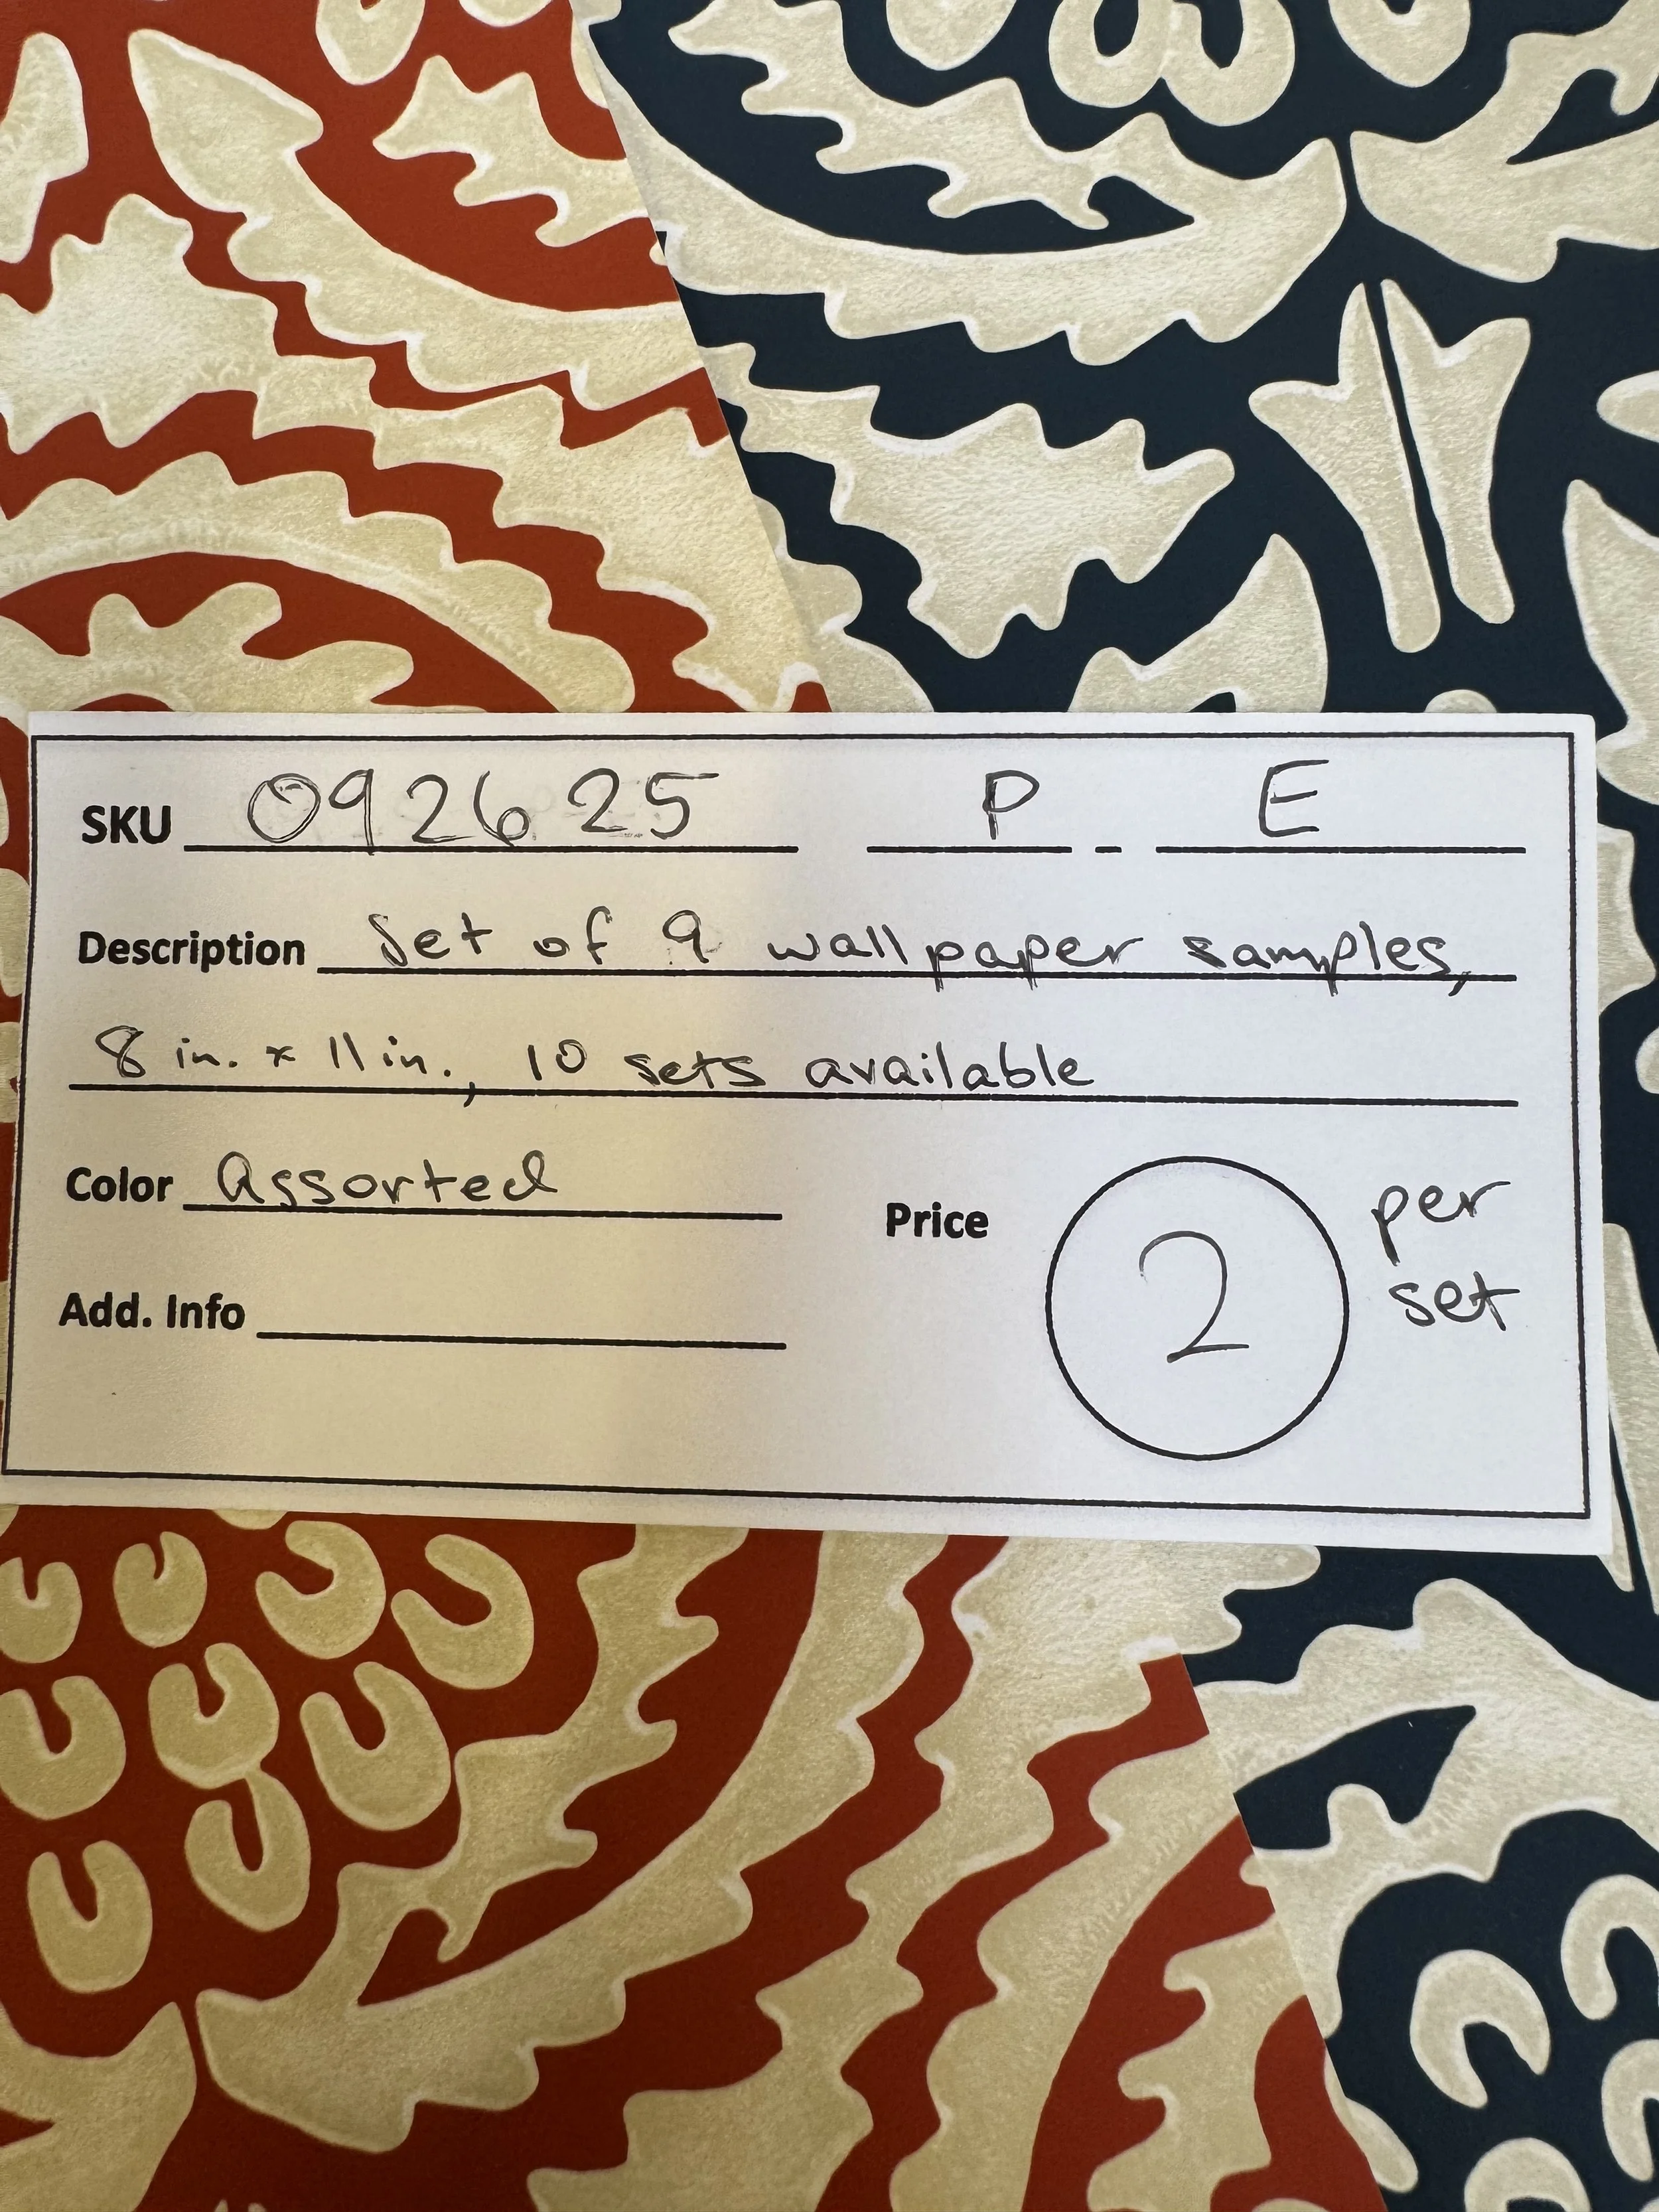 SKU 092625 P - E
Description Set of 9 wallpaper samples,
8 in. x 11 in., 10 sets available
Color Assorted
Price 2 per set
Add. Info